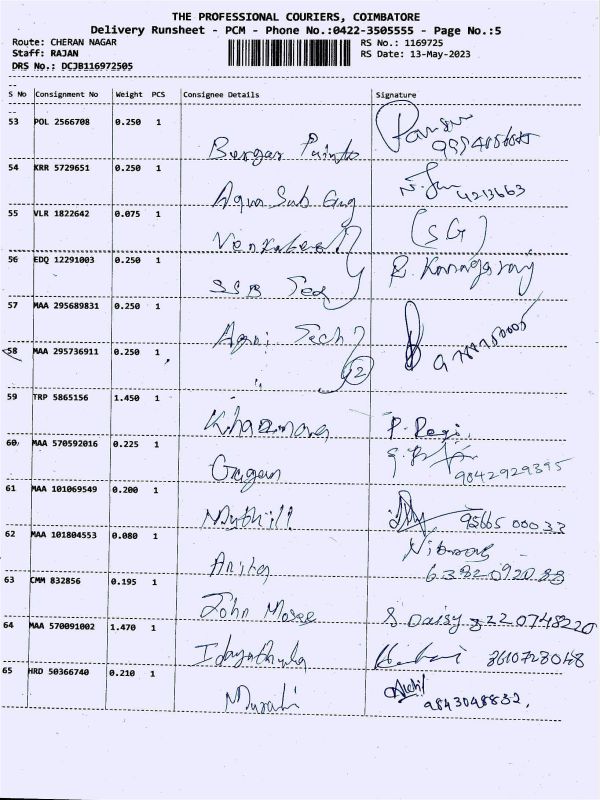 THE PROFESSIONAL COURIERS, COIMBATORE
Delivery Runsheet - PCM - Phone No.:0422-3505555 - Page No.:5
Route: CHERAN NAGAR RS No.: 1169725
Staff: RAJAN RS Date: 13-May-2023
DRS No.: DCJB116972505
S No Consignment No Weight PCS Consignee Details Signature
53 POL 2566708 0.250 1
Bergar Paints
54 KRR 5729651 0.250 1
Aqua Sub Eng 4213663
55 VLR 1822642 0.075 1
(SG)
56 EDQ 12291003 0.250 1
SSB Tex R. Kanagaraj
57 MAA 295689831 0.250 1
Agni Tech
58 MAA 295736911 0.250 1
" 2
59 TRP 5865156 1.450 1
Khazanova P. Regi
60 MAA 570592016 0.225 1
Gugan 9842929395
61 MAA 101069549 0.200 1
95665 00033
62 MAA 101804553 0.080 1
Anitha 6382092088
63 CMM 832856 0.195 1
John Mosee S Daisy 8220748220
64 MAA 570091002 1.470 1
65 HRD 50366740 0.210 1
Murali 9843048832.